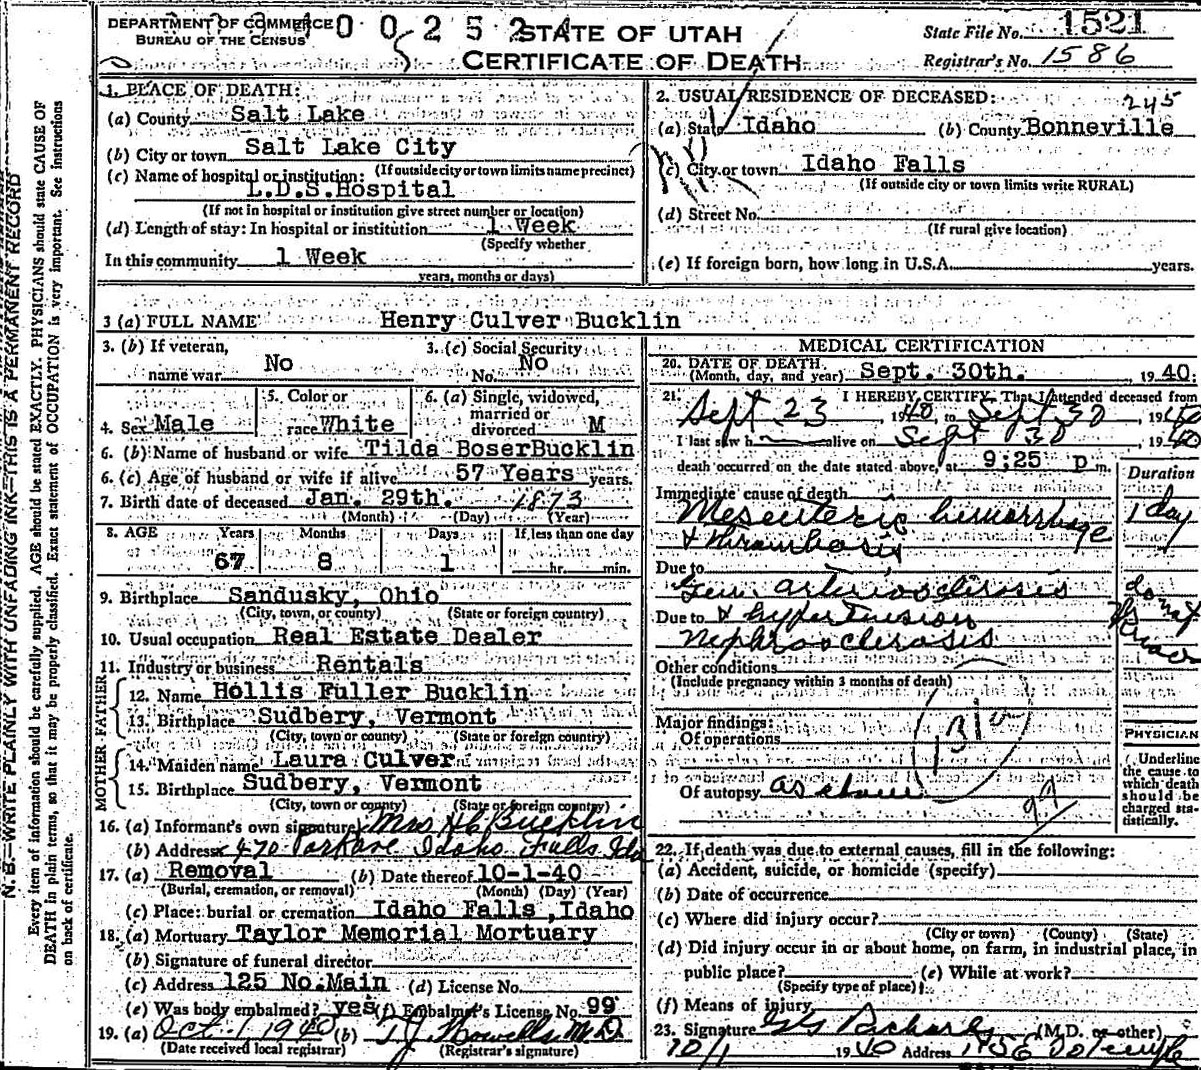 DEPARTMENT OF COMMERCE
BUREAU OF THE CENSUS
STATE OF UTAH
CERTIFICATE OF DEATH
State File No. 1521
Registrar's No. 1586
N.B.—WRITE PLAINLY WITH UNFADING INK—THIS IS A PERMANENT RECORD
Every item of information should be carefully supplied. AGE should be stated EXACTLY. PHYSICIANS should state CAUSE OF
DEATH in plain terms, so that it may be properly classified. Exact statement of OCCUPATION is very important. See instructions
on back of certificate.
1. PLACE OF DEATH:
(a) County Salt Lake
(b) City or town Salt Lake City
(If outside city or town limits name precinct)
(c) Name of hospital or institution:
L.D.S. Hospital
(If not in hospital or institution give street number or location)
(d) Length of stay: In hospital or institution 1 Week
(Specify whether
In this community 1 Week
years, months or days)
2. USUAL RESIDENCE OF DECEASED: 245
(a) State Idaho (b) County Bonneville
(c) City or town Idaho Falls
(If outside city or town limits write RURAL)
(d) Street No.
(If rural give location)
(e) If foreign born, how long in U.S.A. years.
3 (a) FULL NAME Henry Culver Bucklin
3. (b) If veteran, name war No
3. (c) Social Security No. No
4. Sex Male
5. Color or race White
6. (a) Single, widowed, married or divorced M
6. (b) Name of husband or wife Tilda BoserBucklin
6. (c) Age of husband or wife if alive 57 Years years.
7. Birth date of deceased Jan. 29th. 1873
(Month) (Day) (Year)
8. AGE Years Months Days If less than one day
67 8 1 hr. min.
9. Birthplace Sandusky, Ohio
(City, town, or county) (State or foreign country)
10. Usual occupation Real Estate Dealer
11. Industry or business Rentals
FATHER
12. Name Hollis Fuller Bucklin
13. Birthplace Sudbery, Vermont
(City, town or county) (State or foreign country)
MOTHER
14. Maiden name Laura Culver
15. Birthplace Sudbery, Vermont
(City, town or county) (State or foreign country)
16. (a) Informant's own signature Mrs H C Bucklin
(b) Address 470 Park Ave Idaho Falls Ida
17. (a) Removal (b) Date thereof 10-1-40
(Burial, cremation, or removal) (Month) (Day) (Year)
(c) Place: burial or cremation Idaho Falls, Idaho
18. (a) Mortuary Taylor Memorial Mortuary
(b) Signature of funeral director
(c) Address 125 No. Main (d) License No.
(e) Was body embalmed? yes (f) Embalmer's License No. 99
19. (a) Oct 1 1940 (b) T J Howells M.D.
(Date received local registrar) (Registrar's signature)
MEDICAL CERTIFICATION
20. DATE OF DEATH
(Month, day, and year) Sept. 30th. 1940.
21. I HEREBY CERTIFY, That I attended deceased from
Sept 23, 1940 to Sept 30, 1940
I last saw h alive on Sept 30 1940
death occurred on the date stated above, at 9:25 p m.
Duration
Immediate cause of death
Mesenteric hemorrhage 1 day
& thrombosis
Due to
Gen arteriosclerosis
Due to & hypertension
Nephrosclerosis
Other conditions
(Include pregnancy within 3 months of death)
Major findings:
Of operations
Of autopsy as above
PHYSICIAN
Underline the cause to which death should be charged statistically.
22. If death was due to external causes, fill in the following:
(a) Accident, suicide, or homicide (specify)
(b) Date of occurrence
(c) Where did injury occur?
(City or town) (County) (State)
(d) Did injury occur in or about home, on farm, in industrial place, in
public place? (e) While at work?
(Specify type of place)
(f) Means of injury
23. Signature G S Richards (M.D. or other)
10/1 1940 Address